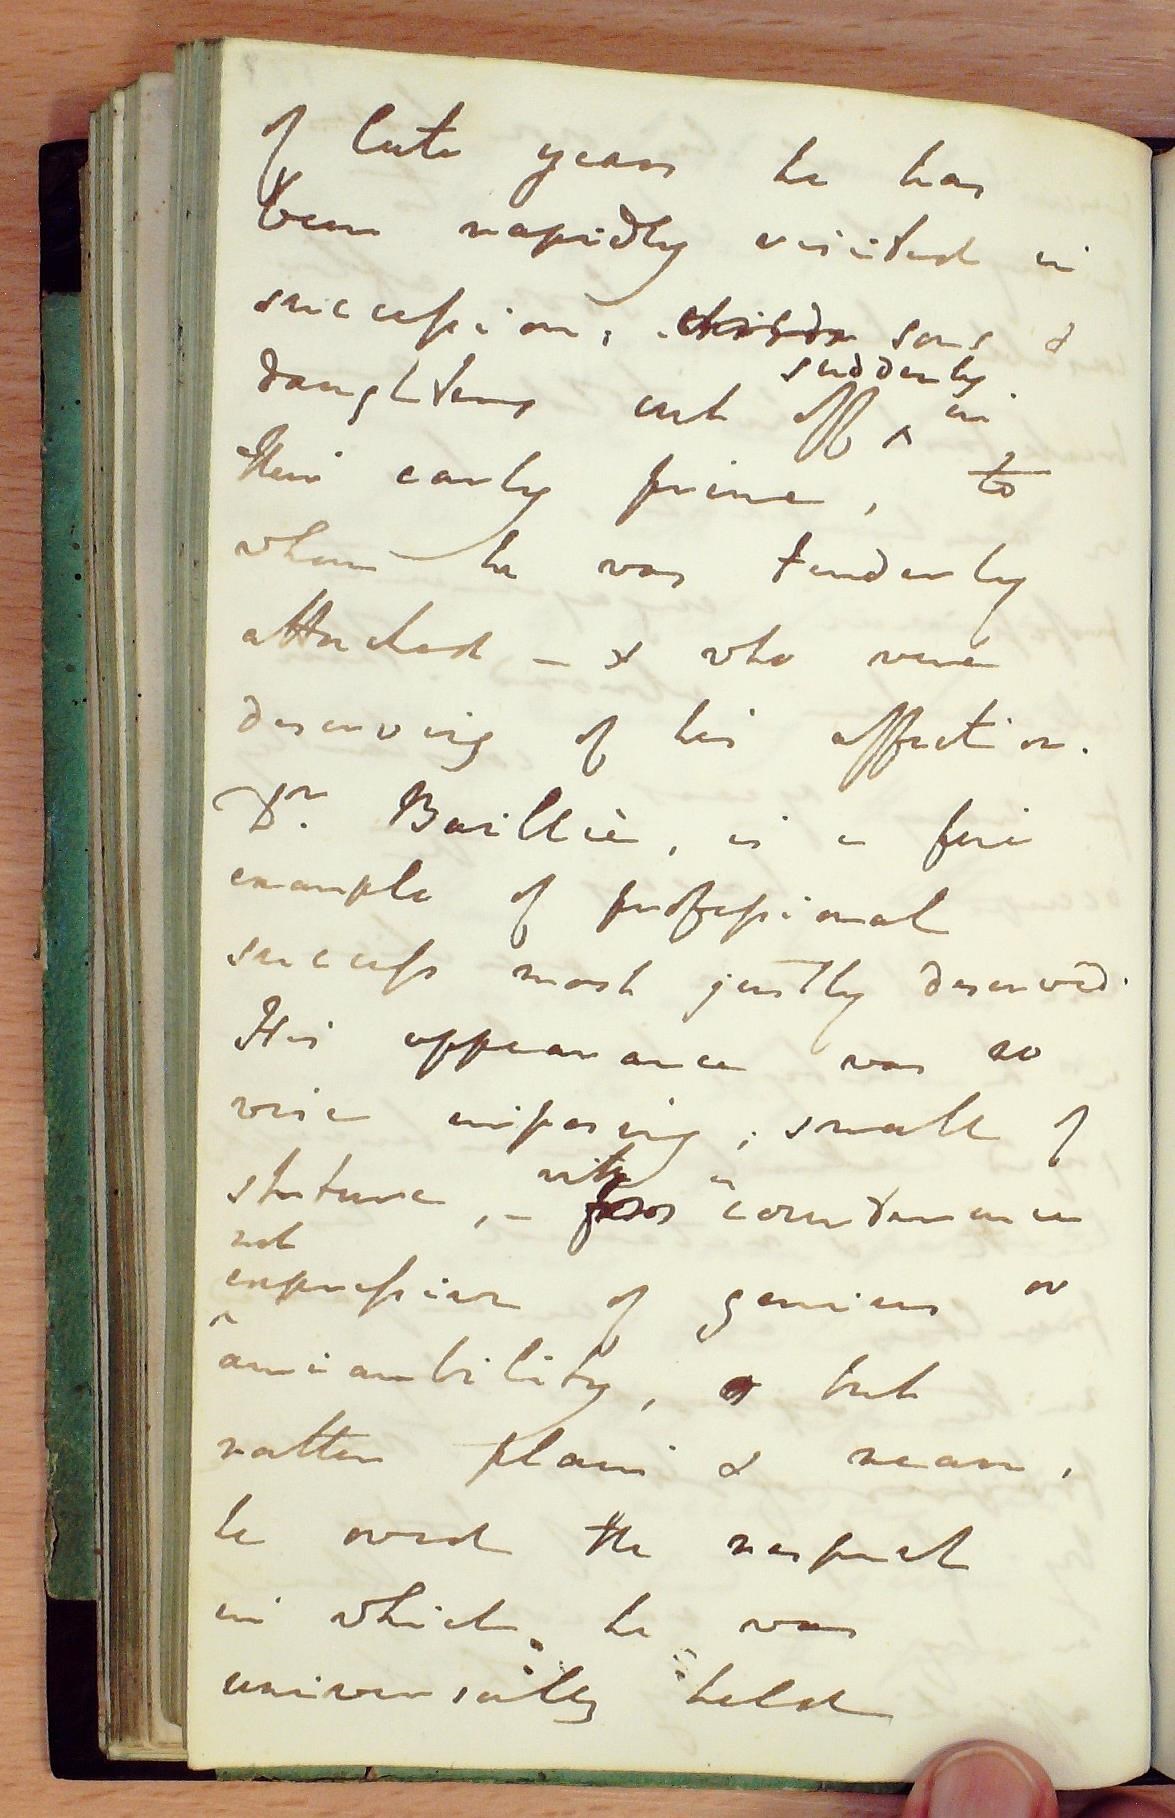 of late years he has
been rapidly visited in
succession; sons &
daughters cut off suddenly in
their early prime, to
whom he was tenderly
attached – & who were
deserving of his affection.
Dr. Baillie, is a fine
example of professional
success most justly deserved.
His appearance was no
wise imposing; small of
stature, – with a countenance
not
expressive of genius or
amiambility, but
rather plain & mean,
he owed the respect
in which he was
universally held